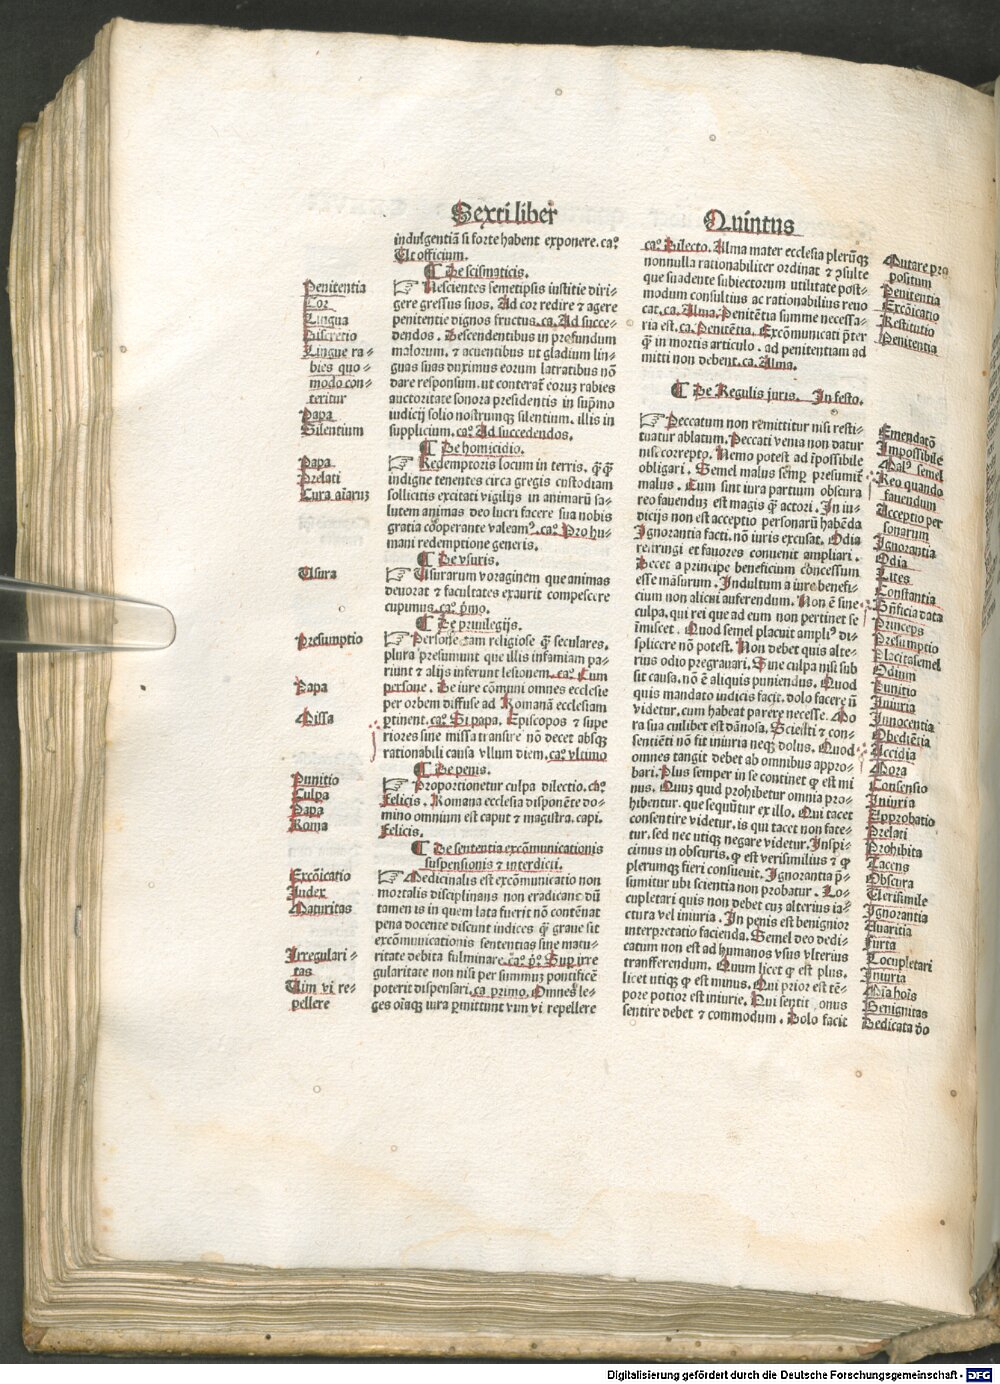 Sexti liber
Quintus
indulgentiā si forte habent exponere. ca⁹
Ut officium.
¶ De scismaticis.
Penitentia
Cor
Lingua
Discretio
Lingue ra-
bies quo-
modo con-
teritur
Papa
Silentium
☞ Nescientes semetipsis iustitie diri-
gere gressus suos. Ad cor redire ⁊ agere
penitentie dignos fructus. ca. Ad succe-
dendos. Descendentibus in profundum
malorum. ⁊ acuentibus ut gladium lin-
guas suas duximus eorum latratibus nō
dare responsum. ut conterat̄ eoruʒ rabies
auctoritate sonora presidentis in sup̄mo
iudicij solio nostrumqʒ silentium. illis in
supplicium. ca⁹. Ad succedendos.
¶ De homicidio.
Papa
Prelati
Cura aīaruʒ
☞ Redemptoris locum in terris. q̄q̄
indigne tenentes circa gregis custodiam
sollicitis excitati vigilijs in animarū sa-
lutem animas deo lucri facere sua nobis
gratia cōoperante valeam⁹. ca⁹. Pro hu-
mani redemptione generis.
¶ De vsuris.
Usura
☞ Usurarum voraginem que animas
deuorat ⁊ facultates exaurit compescere
cupimus. ca⁹. p̄mo.
¶ De priuilegijs.
Presumptio
Papa
Missa
☞ Persone tam religiose q̄ seculares.
plura presumunt que illis infamiam pa-
riunt ⁊ alijs inferunt lesionem. ca⁹. Cum
persone. De iure cōmuni omnes ecclesie
per orbem diffuse ad Romanā ecclesiam
ꝑtinent. ca⁹. Si papa. Episcopos ⁊ supe
riores sine missa transire nō decet absqʒ
rationabili causa vllum diem. ca⁹. vltimo
¶ De penis.
Punitio
Culpa
Papa
Roma
☞ Proportionetur culpa dilectio. ca⁹
Felicis. Romana ecclesia disponēte do-
mino omnium est caput ⁊ magistra. capi.
Felicis.
¶ De sententia excōmunicationis
suspensionis ⁊ interdicti.
Excōicatio
Iudex
Maturitas
Irregulari-
tas
Uim vi re-
pellere
☞ Medicinalis est excōmunicatio non
mortalis disciplinans non eradicans dū
tamen is in quem lata fuerit nō contēnat
pena docente discunt iudices q̄ graue sit
excōmunicationis sententias sine matu-
ritate debita fulminare. ca⁹. p̄⁹. Sup irre
gularitate non nisi per summuʒ pontificē
poterit dispensari. ca primo. Omnes le-
ges oīaqʒ iura ꝑmittunt vim vi repellere
ca⁹. Dilecto. Alma mater ecclesia plerūqʒ
nonnulla rationabiliter ordinat ⁊ ꝯsulte
que suadente subiectorum utilitate post-
modum consultius ac rationabilius reuo
cat. ca. Alma. Penitētia summe necessa-
ria est. ca. Penitētia. Excōmunicati p̄ter
q̄ in mortis articulo. ad penitentiam ad
mitti non debent. ca. Alma.
Mutare pro
positum
Penitentia
Excōicatio
Restitutio
Penitentia
¶ De Regulis iuris. In festo.
☞ Peccatum non remittitur nisi resti-
tuatur ablatum. Peccati venia non datur
nisi correpto. Nemo potest ad īpossibile
obligari. Semel malus semꝑ presumit̄
malus. Cum sunt iura partium obscura
reo fauenduʒ est magis q̄ actori. In iu-
dicijs non est acceptio personarū habēda
Ignorantia facti. nō iuris excusat. Odia
restringi et fauores conuenit ampliari.
Decet a principe beneficium cōncessum
esse māsurum. Indultum a iure benefi-
cium non alicui auferendum. Non ē sine
culpa. qui rei que ad eum non pertinet se
īmiscet. Quod semel placuit ampli⁹ di-
splicere nō potest. Non debet quis alte-
rius odio pregrauari. Sine culpa nisi sub
sit causa. nō ē aliquis puniendus. Quod
quis mandato iudicis facit. dolo facere nī
videtur. cum habeat parere necesse. Mo
ra sua cuilibet est dānosa. Sciēti ⁊ con-
sentiēti nō fit iniuria neqʒ dolus. Quod
omnes tangit debet ab omnibus appro-
bari. Plus semper in se continet qͣ est mi
nus. Cuiʒ quid prohibetur omnia pro-
hibentur. que sequūtur ex illo. Qui tacet
consentire videtur. is qui tacet non fate-
tur. sed nec utiqʒ negare videtur. Inspi-
cimus in obscuris. qͣ est verisimilius ⁊ qͣ
plerumqʒ fieri consueuit. Ignorantia p̄-
sumitur ubi scientia non probatur. Lo-
cupletari quis non debet cuʒ alterius ia-
ctura vel iniuria. In penis est benignior
interpretatio facienda. Semel deo dedi-
catum non est ad humanos vsus vlterius
transferendum. Quum licet qͣ est plus.
licet utiqʒ qͣ est minus. Qui prior est tē-
pore potior est iniurie. Qui sentit onus
sentire debet ⁊ commodum. Dolo facit
Emendatō
Impossibile
Mal⁹ semel
Reo quando
fauendum
Acceptio per
sonarum
Ignorantia
Odia
Lites
Constantia
Bn̄ficia data
Princeps
Presumptio
Placita semel
Odium
Punitio
Iniuria
Innocentia
Obediētia
Accidia
Mora
Consensio
Iniuria
Approbatio
Prelati
Prohibita
Tacens
Obscura
Uerisimile
Ignorantia
Auaritia
Furta
Locupletari
Iniuria
Mīa hoīs
Benignitas
Dedicata dō
Digitalisierung gefördert durch die Deutsche Forschungsgemeinschaft - DFG